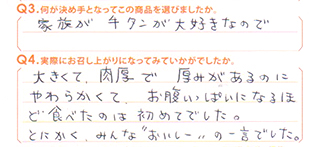 Q3.何が決め手となってこの商品を選びましたか。
家族が チキンが大好きなので
Q4.実際にお召し上がりになってみていかがでしたか。
大きくて、肉厚で 厚みがあるのに
やわらかくて、お腹いっぱいになるほ
ど食べたのは初めてでした。
とにかく、みんな"おいしー"の一言でした。